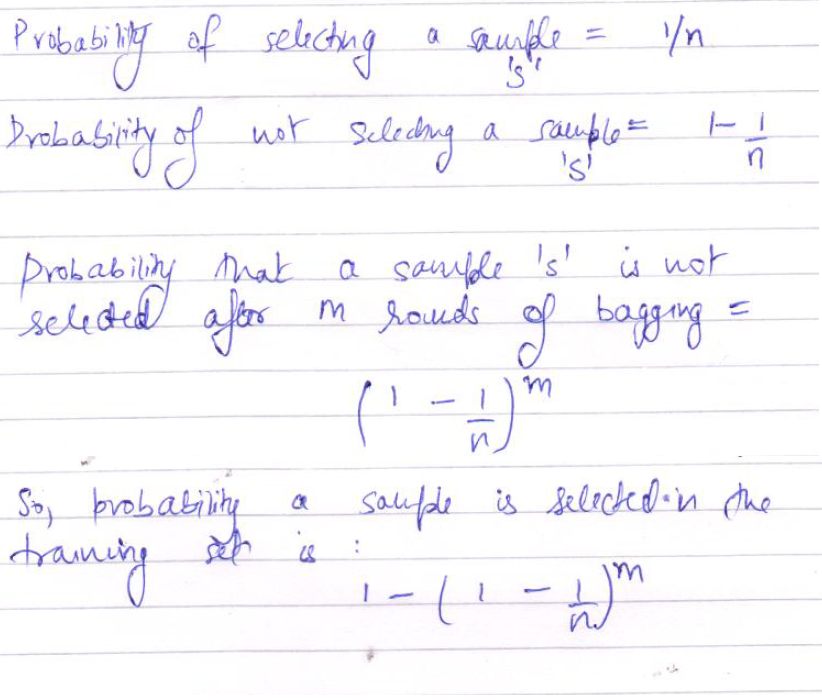 Probability of selecting a sample = 1/n
's'
Probability of not selecting a sample = 1 - 1/n
's'
Probability that a sample 's' is not
selected after m rounds of bagging =
(1 - 1/n)^m
So, probability a sample is selected in the
training set is :
1 - (1 - 1/n)^m